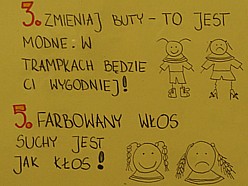 3. ZMIENIAJ BUTY - TO JEST
MODNE: W
TRAMPKACH BĘDZIE
CI WYGODNIEJ!
5. FARBOWANY WŁOS
SUCHY JEST
JAK KŁOS!